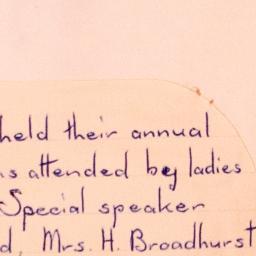 held their annual
attended by ladies
Special speaker
Mrs. H. Broadhurst